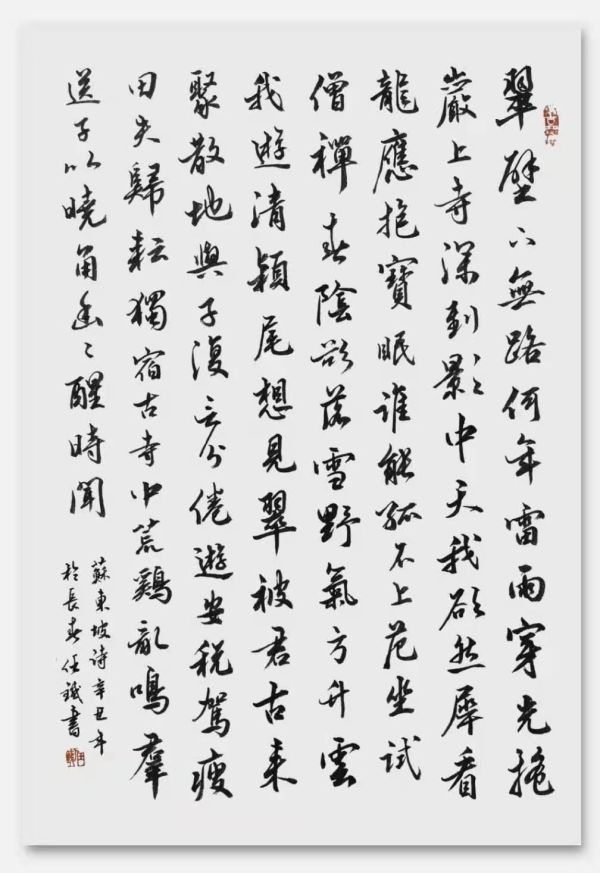 翠壁下無路何年雷雨穿光搖
巖上寺深到影中天我欲然犀看
龍應抱寶眠誰能孤石上危坐試
僧禪春陰欲落雪野氣方升雲
我遊清潁尾想見翠被君古來
聚散地與子復言分倦遊安稅駕瘦
田失歸耘獨宿古寺中荒鷄亂鳴羣
送子以曉角幽々醒時聞
蘇東坡诗辛丑年
於長春任鐵書